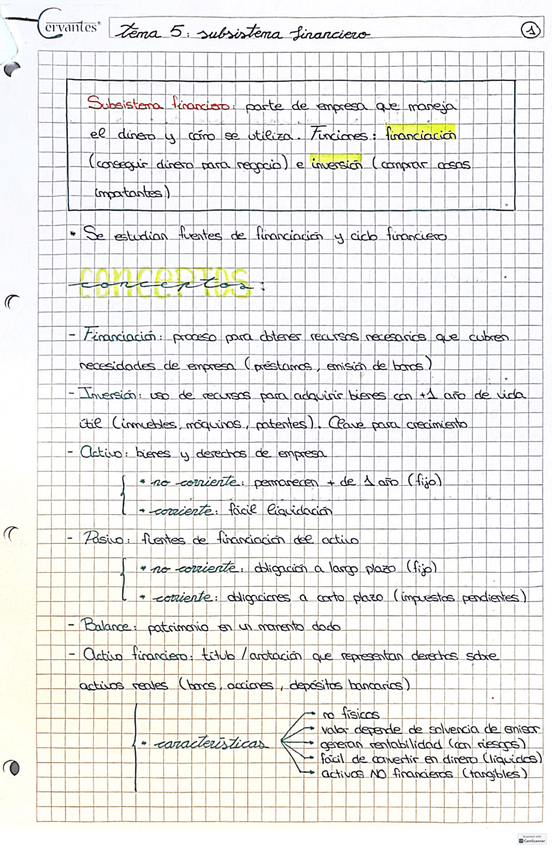 Cervantes®
Tema 5: subsistema financiero
1
Subsistema financiero: parte de empresa que maneja
el dinero y cómo se utiliza. Funciones: financiación
(conseguir dinero para negocio) e inversión (comprar cosas
importantes)
• Se estudian fuentes de financiación y ciclo financiero
CONCEPTOS
conceptos:
- Financiación: proceso para obtener recursos necesarios que cubren
necesidades de empresa (préstamos, emisión de bonos)
- Inversión: uso de recursos para adquirir bienes con +1 año de vida
útil (inmuebles, máquinas, patentes). Clave para crecimiento
- Activo: bienes y derechos de empresa
• no corriente: permanecen + de 1 año (fijo)
• corriente: fácil liquidación
- Pasivo: fuentes de financiación del activo
• no corriente: obligación a largo plazo (fijo)
• corriente: obligaciones a corto plazo (impuestos pendientes)
- Balance: patrimonio en un momento dado
- Activo financiero: título/anotación que representan derechos sobre
activos reales (bonos, acciones, depósitos bancarios)
• características
no físicos
valor depende de solvencia de emisor
generan rentabilidad (con riesgos)
fácil de convertir en dinero (líquidos)
activos NO financieros (tangibles)
Scanned with
CamScanner